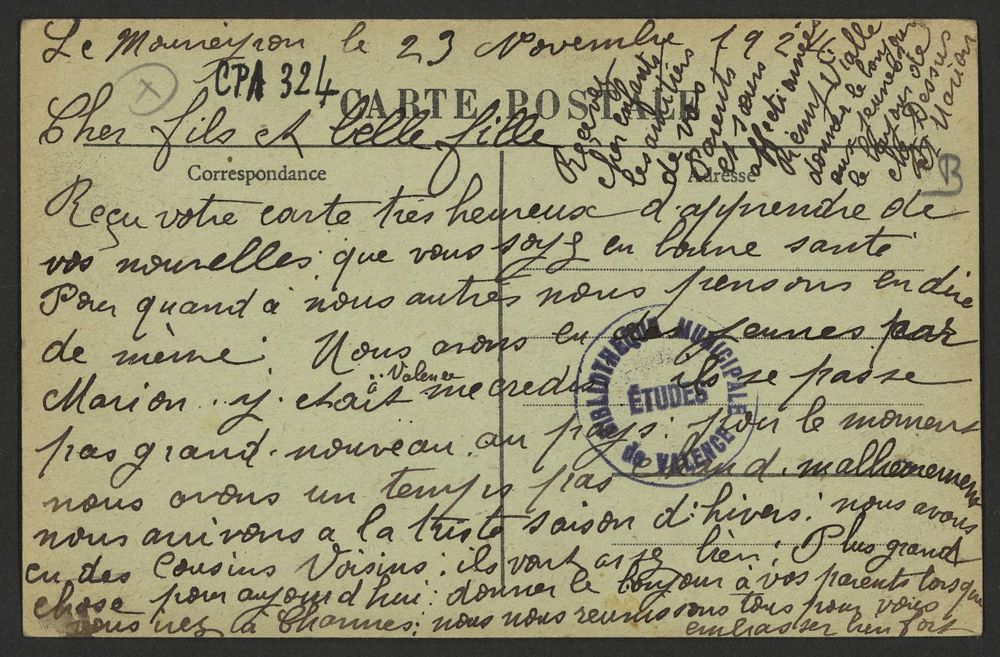 Le Mouneyron le 23 Novembre 192
CPA 324
CARTE POSTALE
Cher fils et belle fille
Correspondance
Adresse
B
Reçu votre carte très heureux d'apprendre de
vos nouvelles que vous soyz en bonne santé
Pour quand à nous autres nous pensons en dire
de même. Nous avons eu des jeunes par
Marion. y. etait à Valence mecredi ils se passe
pas grand. nouveau. au pays. pour le moment
nous avons un temps pas malheureument
nous arrivons a la triste saison d'hivers. nous avons
eu des Cousins Voisins. ils vont assez bien. Plus grand
chose pour aujourd'hui. donner le bonjour à vos parents lorsque
vous irez à Charmes. nous nous reunissons tous pour vous
embrasser bien fort
Recevez
cher enfants
les amitiers
de vos
Parents
et
affectionnés
Vialle
donner le bonjour
aux jeunes
le bonjour de
Dessus
Marion
BIBLIOTHEQUE MUNICIPALE
ÉTUDES
de VALENCE